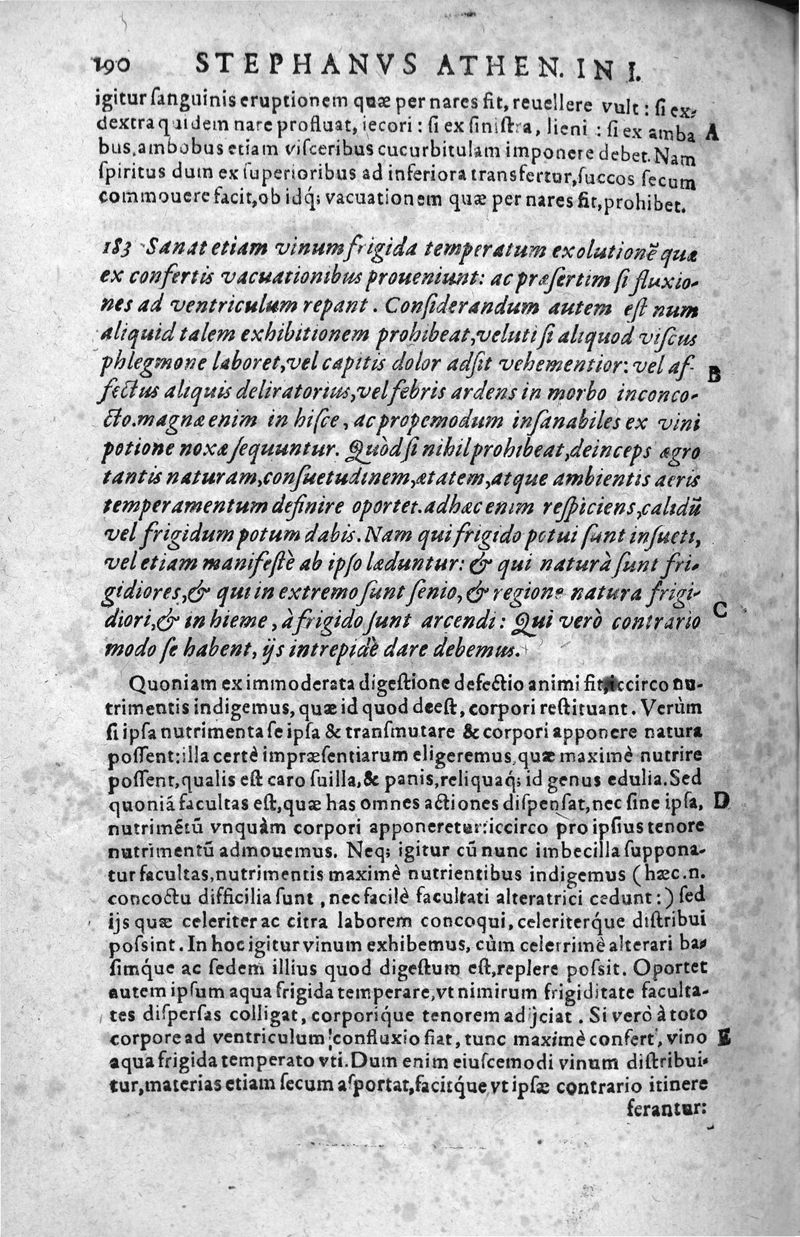 190 STEPHANVS ATHEN. IN I.
igitur ſanguinis eruptionem quæ per nares fit, reuellere vult : ſi ex
dextra quidem nare profluat, iecori : ſi ex ſiniſtra, lieni : ſi ex amba A
bus, ambobus etiam viſceribus cucurbitulam imponere debet. Nam
ſpiritus dum ex ſuperioribus ad inferiora transfertur, ſuccos ſecum
commouere facit, ob idq́; vacuationem quæ per nares fit, prohibet.
183 Sanat etiam vinum frigida temperatum exolutionē quæ
ex confertis vacuationibus proueniunt: ac præſertim ſi fluxio-
nes ad ventriculum repant. Conſiderandum autem eſt num
aliquid talem exhibitionem prohibeat, veluti ſi aliquod viſcus
phlegmone laboret, vel capitis dolor adſit vehementior: vel af- B
fectus aliquis deliratorius, vel febris ardens in morbo inconco-
cto. magna enim in hiſce, ac propemodum inſanabiles ex vini
potione noxæ ſequuntur. Quòd ſi nihil prohibeat, deinceps ægro
tantis naturam, conſuetudinem, ætatem, atque ambientis aeris
temperamentum definire oportet. ad hæc enim reſpiciens, calidū
vel frigidum potum dabis. Nam qui frigido potui ſunt inſueti,
vel etiam manifeſtè ab ipſo læduntur: & qui naturà ſunt fri-
gidiores, & qui in extremo ſunt ſenio, & regione natura frigi-
diori, & in hieme, à frigido ſunt arcendi : Qui verò contrario C
modo ſe habent, ijs intrepidè dare debemus.
Quoniam ex immoderata digeſtione defectio animi fit, iccirco nu-
trimentis indigemus, quæ id quod deeſt, corpori reſtituant. Verùm
ſi ipſa nutrimenta ſe ipſa & tranſmutare & corpori apponere natura
poſſent: illa certè impræſentiarum eligeremus, quæ maximè nutrire
poſſent, qualis eſt caro ſuilla, & panis, reliquaq́; id genus edulia. Sed
quoniá facultas eſt, quæ has omnes actiones diſpenſat, nec ſine ipſa, D
nutrimétū vnquàm corpori apponeretur: iccirco pro ipſius tenore
nutrimentū admouemus. Neq; igitur cū nunc imbecilla ſuppona-
tur facultas, nutrimentis maximè nutrientibus indigemus (hæc.n.
concoctu difficilia ſunt, nec facilè facultati alteratrici cedunt :) ſed
ijs quæ celeriter ac citra laborem concoqui, celeriterq́ue diſtribui
poſsint. In hoc igitur vinum exhibemus, cùm celerrimè alterari ba-
ſimq́ue ac ſedem illius quod digeſtum eſt, replere poſsit. Oportet
autem ipſum aqua frigida temperare, vt nimirum frigiditate faculta-
tes diſperſas colligat, corporiq́ue tenorem adijciat. Si verò à toto
corpore ad ventriculum confluxio fiat, tunc maximè confert, vino E
aqua frigida temperato vti. Dum enim eiuſcemodi vinum diſtribui-
tur, materias etiam ſecum aſportat, facitq́ue, vt ipſæ contrario itinere
ferantur: